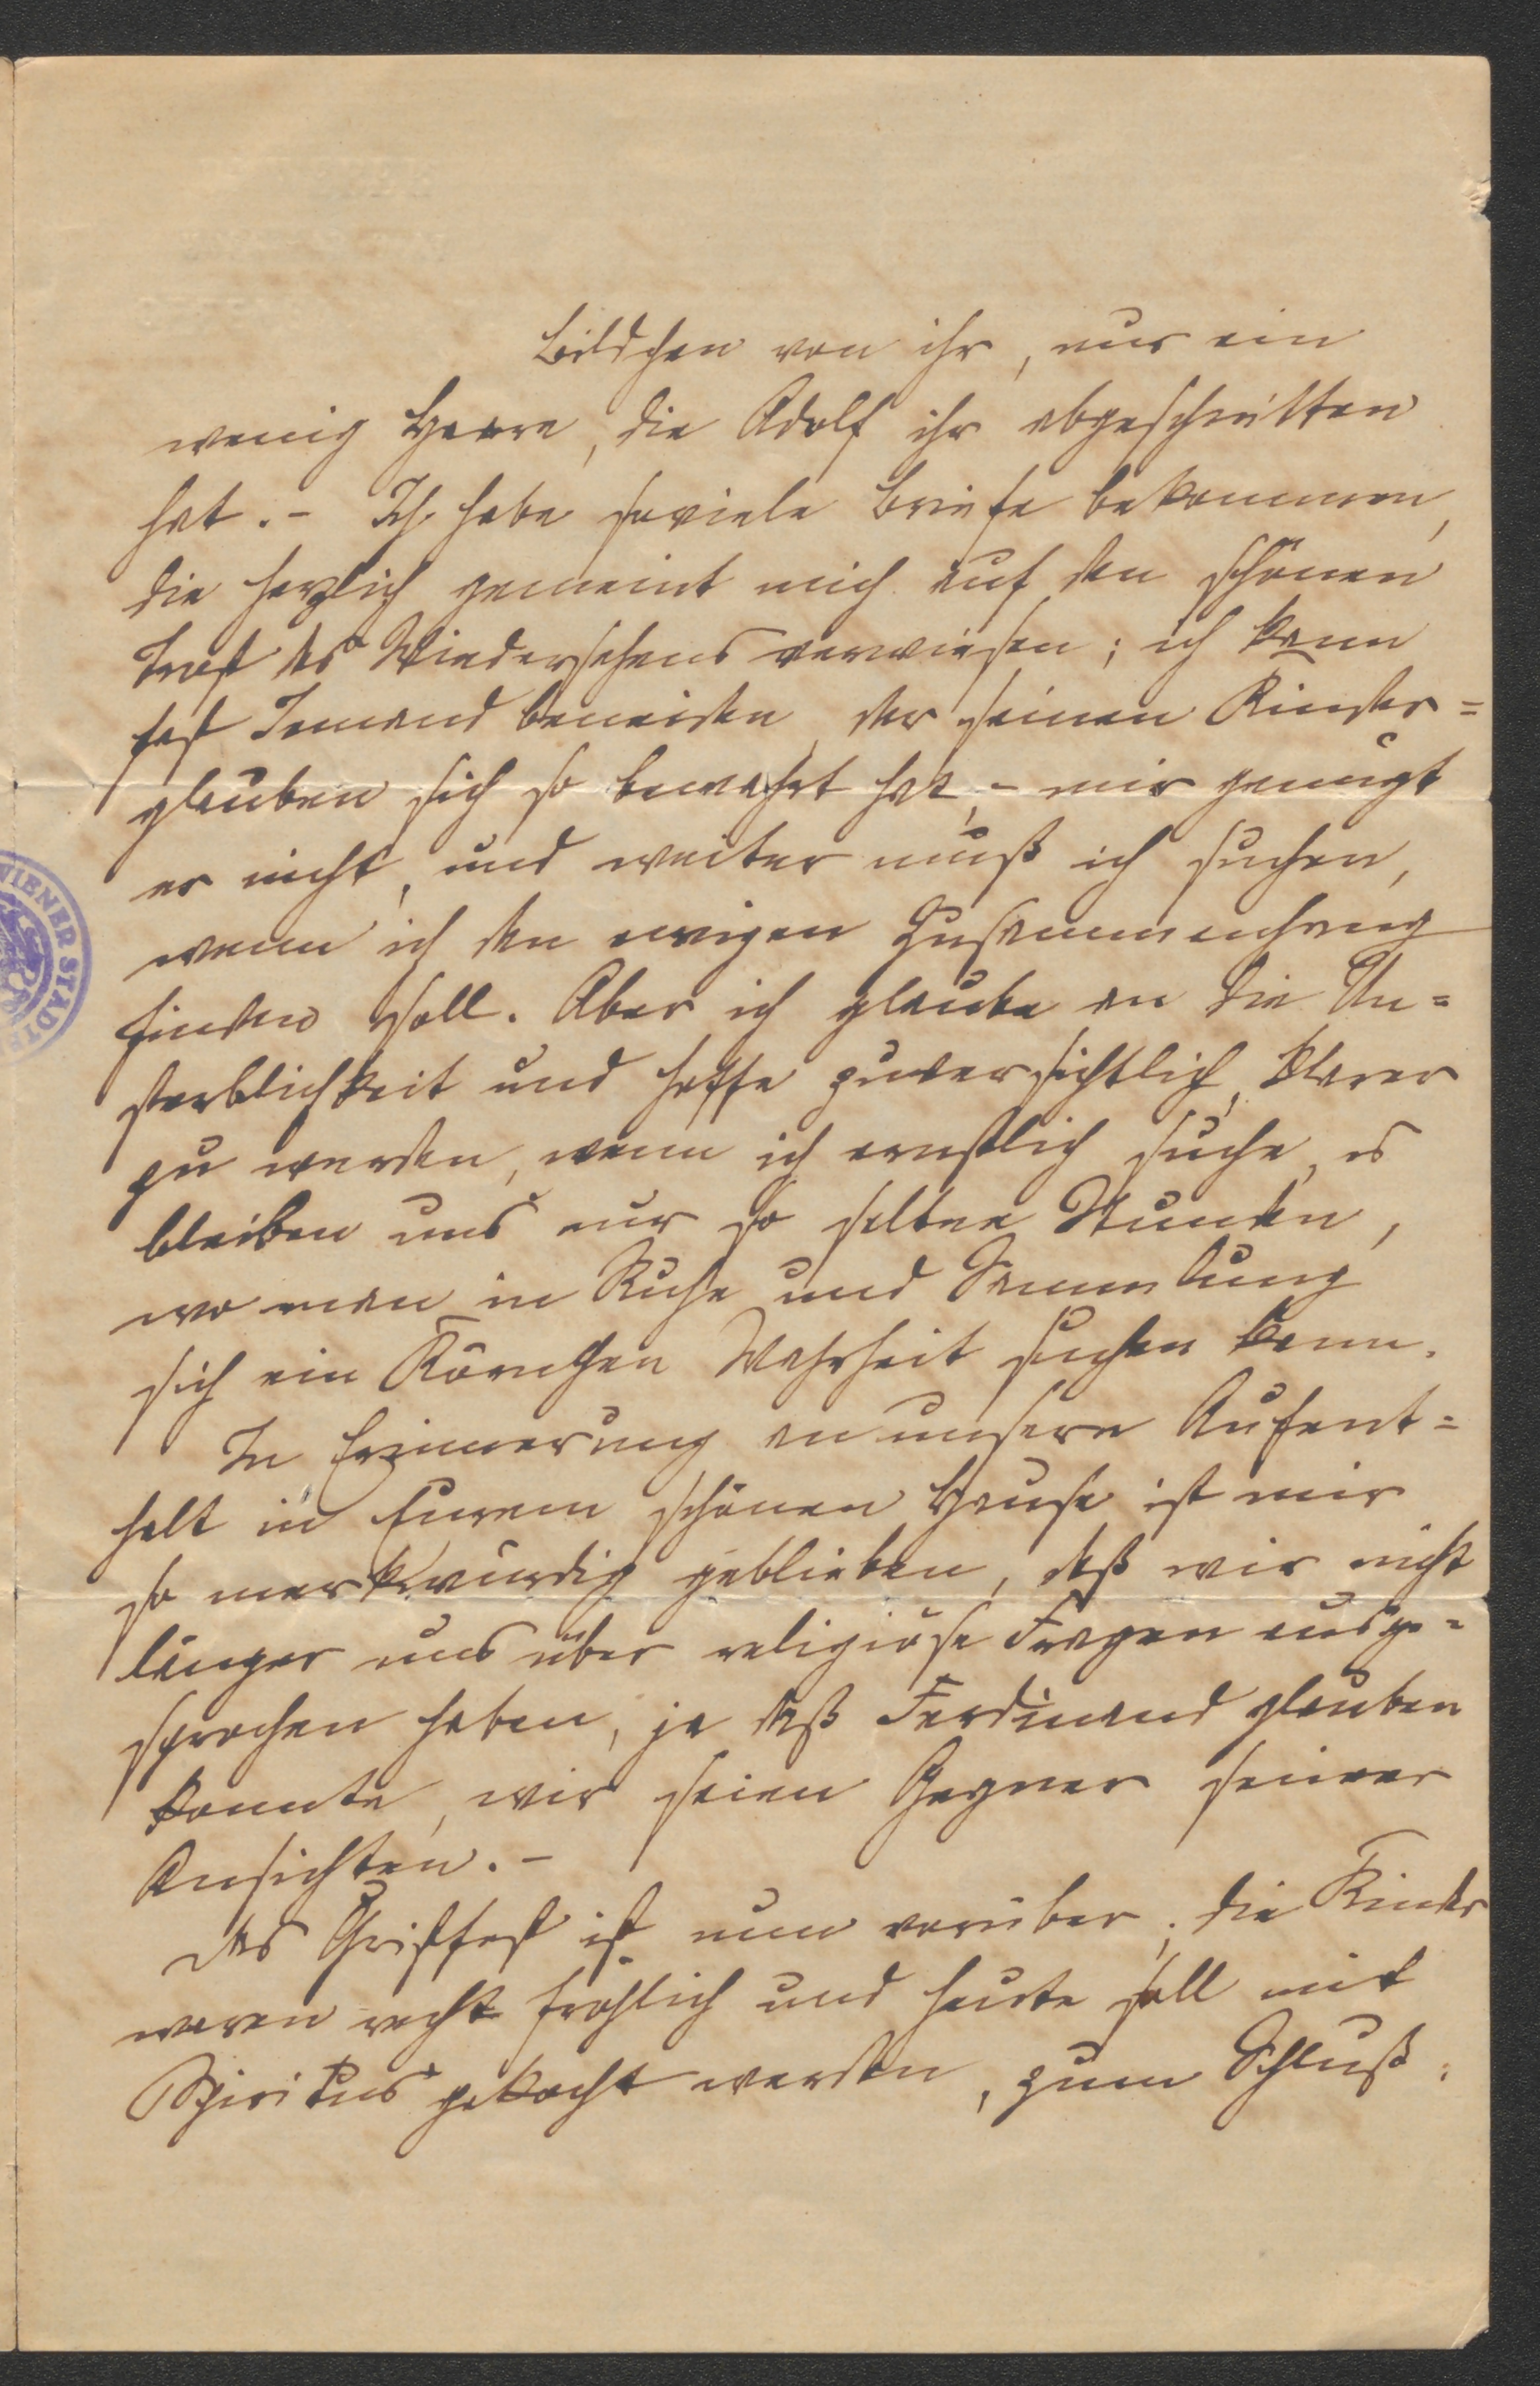 Bildchen von ihr, nur ein
wenig Haare, die Adolf ihr abgeschnitten
hat. - Ich habe soviele Briefe bekommen,
die herzlich gemeint mich auf den schönen
Trost des Wiedersehens verwiesen; ich kann
fast Jemand beneiden, der seinen Kinder=
glauben sich so bewahrt hat, - mir genügt
er nicht, und weiter muß ich suchen,
wenn ich den ewigen Zusammenhang
finden soll. Aber ich glaube an die Un=
sterblichkeit und hoffe zuversichtlich, klarer
zu werden, wenn ich ernstlich suche, es
bleiben uns nur so seltene Stunden,
wo man in Ruhe und Sammlung
sich ein Körnchen Wahrheit suchen kann.
In Erinnerung an unsern Aufent=
halt in Eurem schönen Hause ist mir
so merkwürdig geblieben, daß wir nicht
länger uns über religiöse Fragen ausge=
sprochen haben, ja daß Ferdinand glauben
konnte, wir seien Gegner seiner
Ansichten. -
Das Christfest ist nun vorüber, die Kinder
waren recht fröhlich und heute soll mit
Spiritus gekocht werden, zum Schluß.
WIENER STADT